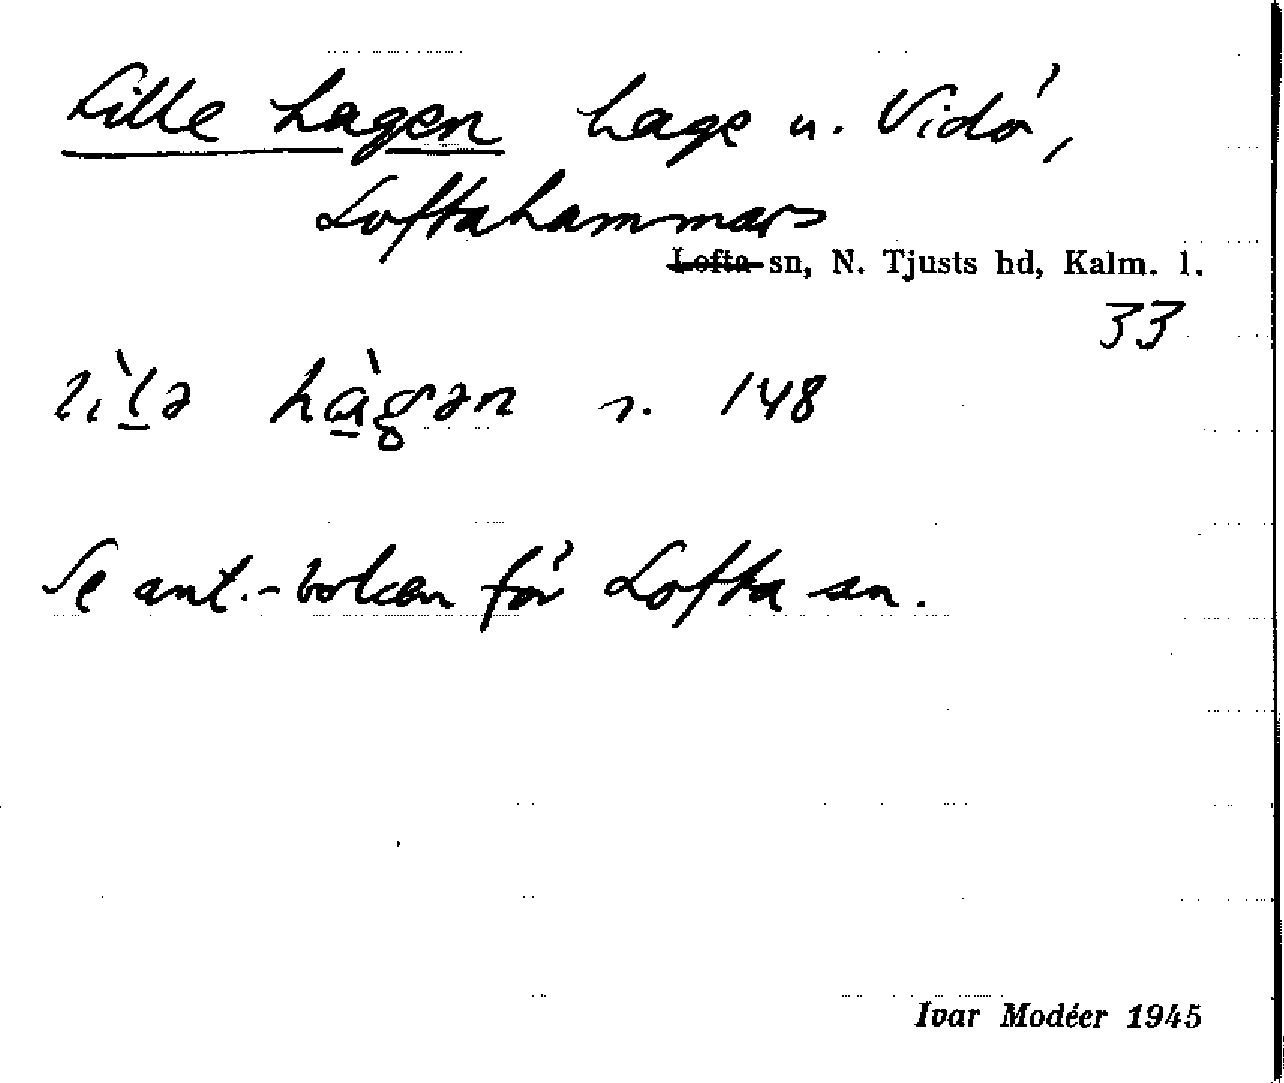 Lille hagen hage u. Vidö,
Loftahammars
Lofta sn, N. Tjusts hd, Kalm. l.
33
lìlə hàgən s. 148
Se ant.-boken för Lofta sn.
Ivar Modéer 1945